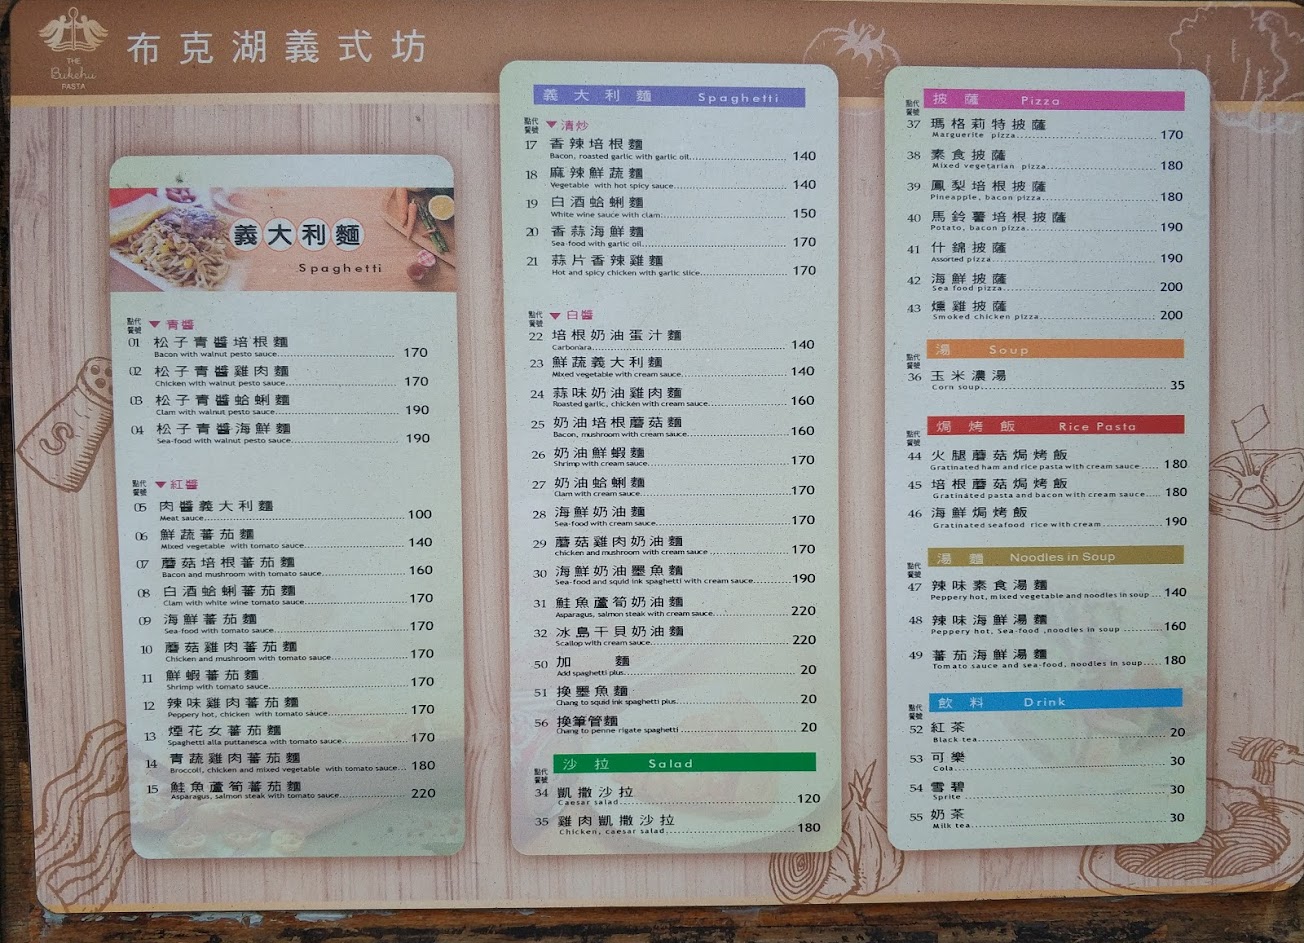 THE
Bukehu
PASTA
布克湖義式坊
義大利麵
Spaghetti
點代
餐號
▼青醬
01 松子青醬培根麵
Bacon with walnut pesto sauce 170
02 松子青醬雞肉麵
Chicken with walnut pesto sauce 170
03 松子青醬蛤蜊麵
Clam with walnut pesto sauce 190
04 松子青醬海鮮麵
Sea-food with walnut pesto sauce 190
點代
餐號
▼紅醬
05 肉醬義大利麵
Meat sauce 100
06 鮮蔬蕃茄麵
Mixed vegetable with tomato sauce 140
07 蘑菇培根蕃茄麵
Bacon and mushroom with tomato sauce 160
08 白酒蛤蜊蕃茄麵
Clam with white wine tomato sauce 170
09 海鮮蕃茄麵
Sea-food with tomato sauce 170
10 蘑菇雞肉蕃茄麵
Chicken and mushroom with tomato sauce 170
11 鮮蝦蕃茄麵
Shrimp with tomato sauce 170
12 辣味雞肉蕃茄麵
Peppery hot, chicken with tomato sauce 170
13 煙花女蕃茄麵
Spaghetti alla puttanesca with tomato sauce 170
14 青蔬雞肉蕃茄麵
Broccoli, chicken and mixed vegetable with tomato sauce 180
15 鮭魚蘆筍蕃茄麵
Asparagus, salmon steak with tomato sauce 220
義大利麵 Spaghetti
點代
餐號
▼清炒
17 香辣培根麵
Bacon, roasted garlic with garlic oil 140
18 麻辣鮮蔬麵
Vegetable with hot spicy sauce 140
19 白酒蛤蜊麵
White wine sauce with clam 150
20 香蒜海鮮麵
Sea-food with garlic oil 170
21 蒜片香辣雞麵
Hot and spicy chicken with garlic slice 170
點代
餐號
▼白醬
22 培根奶油蛋汁麵
Carbonara 140
23 鮮蔬義大利麵
Mixed vegetable with cream sauce 140
24 蒜味奶油雞肉麵
Roasted garlic, chicken with cream sauce 160
25 奶油培根蘑菇麵
Bacon, mushroom with cream sauce 160
26 奶油鮮蝦麵
Shrimp with cream sauce 170
27 奶油蛤蜊麵
Clam with cream sauce 170
28 海鮮奶油麵
Sea-food with cream sauce 170
29 蘑菇雞肉奶油麵
chicken and mushroom with cream sauce 170
30 海鮮奶油墨魚麵
Sea-food and squid ink spaghetti with cream sauce 190
31 鮭魚蘆筍奶油麵
Asparagus, salmon steak with cream sauce 220
32 冰島干貝奶油麵
Scallop with cream sauce 220
50 加 麵
Add spaghetti plus 20
51 換墨魚麵
Chang to squid ink spaghetti plus 20
56 換筆管麵
Chang to penne rigate spaghetti 20
沙拉 Salad
點代
餐號
34 凱撒沙拉
Caesar salad 120
35 雞肉凱撒沙拉
Chicken, caesar salad 180
披薩 Pizza
點代
餐號
37 瑪格莉特披薩
Marguerite pizza 170
38 素食披薩
Mixed vegetarian pizza 180
39 鳳梨培根披薩
Pineapple, bacon pizza 180
40 馬鈴薯培根披薩
Potato, bacon pizza 190
41 什錦披薩
Assorted pizza 190
42 海鮮披薩
Sea food pizza 200
43 燻雞披薩
Smoked chicken pizza 200
湯 Soup
點代
餐號
36 玉米濃湯
Corn soup 35
焗烤飯 Rice Pasta
點代
餐號
44 火腿蘑菇焗烤飯
Gratinated ham and rice pasta with cream sauce 180
45 培根蘑菇焗烤飯
Gratinated pasta and bacon with cream sauce 180
46 海鮮焗烤飯
Gratinated seafood rice with cream 190
湯麵 Noodles in Soup
點代
餐號
47 辣味素食湯麵
Peppery hot, mixed vegetable and noodles in soup 140
48 辣味海鮮湯麵
Peppery hot, Sea-food ,noodles in soup 160
49 蕃茄海鮮湯麵
Tomato sauce and sea-food, noodles in soup 180
飲料 Drink
點代
餐號
52 紅茶
Black tea 20
53 可樂
Cola 30
54 雪碧
Sprite 30
55 奶茶
Milk tea 30